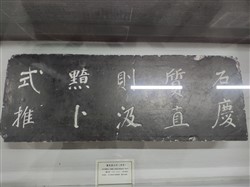 石慶
質直
則汲
黯卜
式推